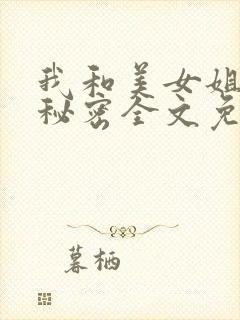 我和美女姐
秘密全文免
暮栖